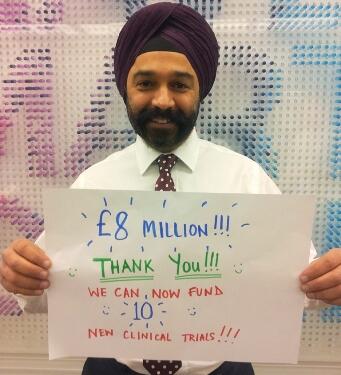 £8 MILLION!!!
THANK YOU!!!
WE CAN NOW FUND
10
NEW CLINICAL TRIALS!!!